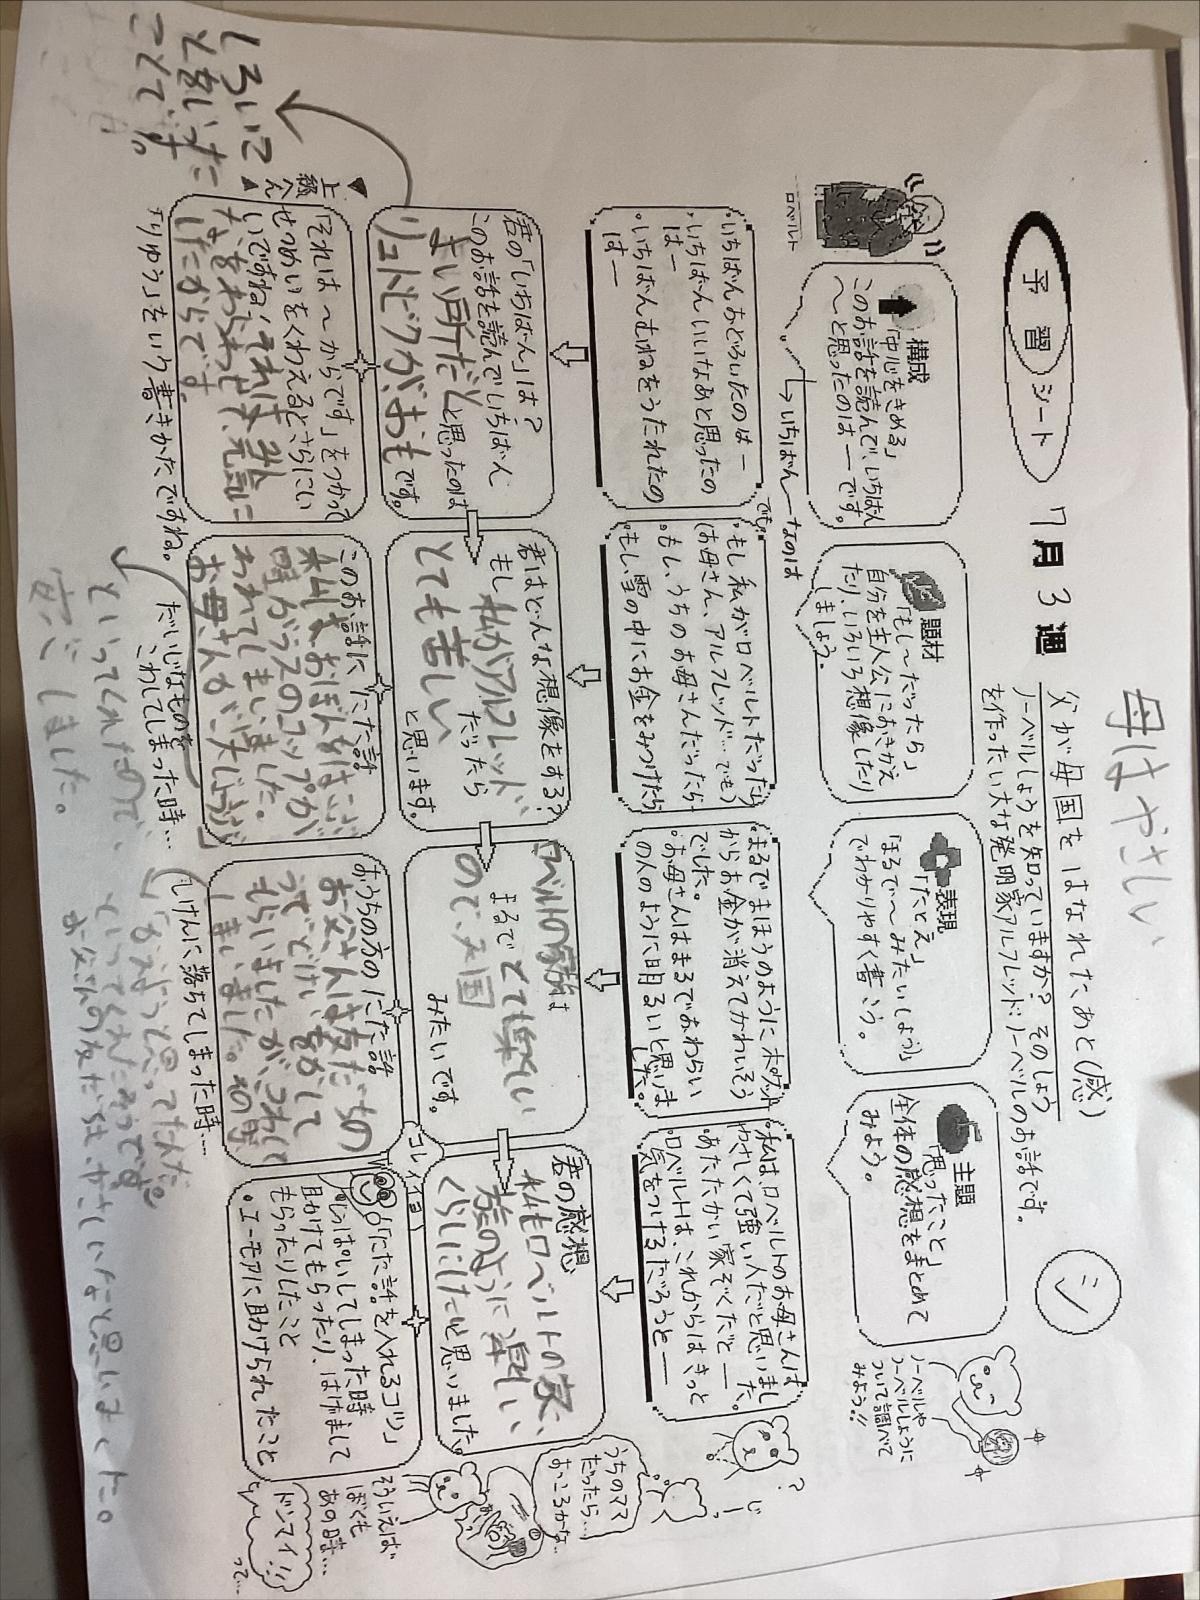 予習シート
7月3週
父が母国をはなれたあと(感)
ノーベルしょうを知っていますか？そのしょう
を作ったい大な発明家アルフレッド・ノーベルのお話です。
母はやさしい
ロベルト
構成
「中心をきめる」
このお話を読んで、いちばん
〜と思ったのは──です。
↳いちばん──なのは
題材
「もし〜だったら」
自分を主人公におきかえ
たり、いろいろ想像したり
しましょう。
表現
「たとえ」
「まるで〜みたい(しょう)」
でわかりやすく書こう。
主題
「思ったこと」
全体の感想をまとめて
みよう。
ノーベルや
ノーベルしょうに
ついて調べて
みよう!!
・いちばんおどろいたのは─
・いちばんいいなあと思ったの
は─
・いちばんむねをうたれたの
は─
・もし私がロベルトだったら
(お母さん、アルフレッド…でも)
でも。
・もし、うちのお母さんだったら
・もし、雪の中にお金をみつけたら
・まるでまほうのようにポケット
からお金が消えてかわいそう
でした。
・お母さんはまるでおわらい
の人のように明るいと思いま
した。
・私はロベルトのお母さんは
やさしくて強い人だと思いました。
・あたたかい家ぞくだと──
・ロベルトは、これからはきっと
気をつけるだろうと──
？
じー
君の「いちばん」は？
このお話を読んでいちばん
まい所だなと思ったのは
リュドビクが、おもです。
しろいこ
と言った
ことです。
君はどんな想像をする？
もし私がアルフレッド
だったら
とても苦しい
と思います。
ロベルトの家族は
まるでとても楽しい
ので、天国
みたいです。
君の感想
私もロベルトの家
族のように楽しい
くらしにしたいと思いました。
うちのママ
だったら…
おこるかな…
上級へん
「それは〜からです」をつかって
せつめいをくわえるとさらにい
いですね！それは、弟が元気に
なをわらわせ
したからです。
「りゆう」をいう書きかたですね。
このお話ににた話
私は、おぼんをはこぶ
時ガラスのコップが
われてしまいました。
お母さんが「大じょうぶ」
といってくれたので、
安心しました。
だいじなものを
こわしてしまった時…
おうちの方のにた話
お父さんは友だちの
って、とけいをかして
もらいましたが、こわして
しまいました。その時
しけんに落ちてしまった時…
といってくれたそうです。
お父さんの友だちは、やさしいなと思いました。
コレイヨ！
「にた話を入れるコツ」
・しっぱいしてしまった時
助けてもらったり、はげまして
もらったりしたこと
・ユーモアに助けられたこと
そういえば
ぼくも
あの時…
ドンマイ!!
って…